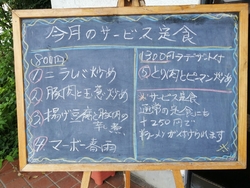 今月のサービス定食
800円
①ニラレバ炒め
②豚肉と玉子炒め
③揚げ豆腐と豚肉の
辛し煮
④マーボー春雨
1300円
⑤とり肉とピーマン炒め
※サービス定食
通常の定食にも
+250円で
半ラーメンがつけられます